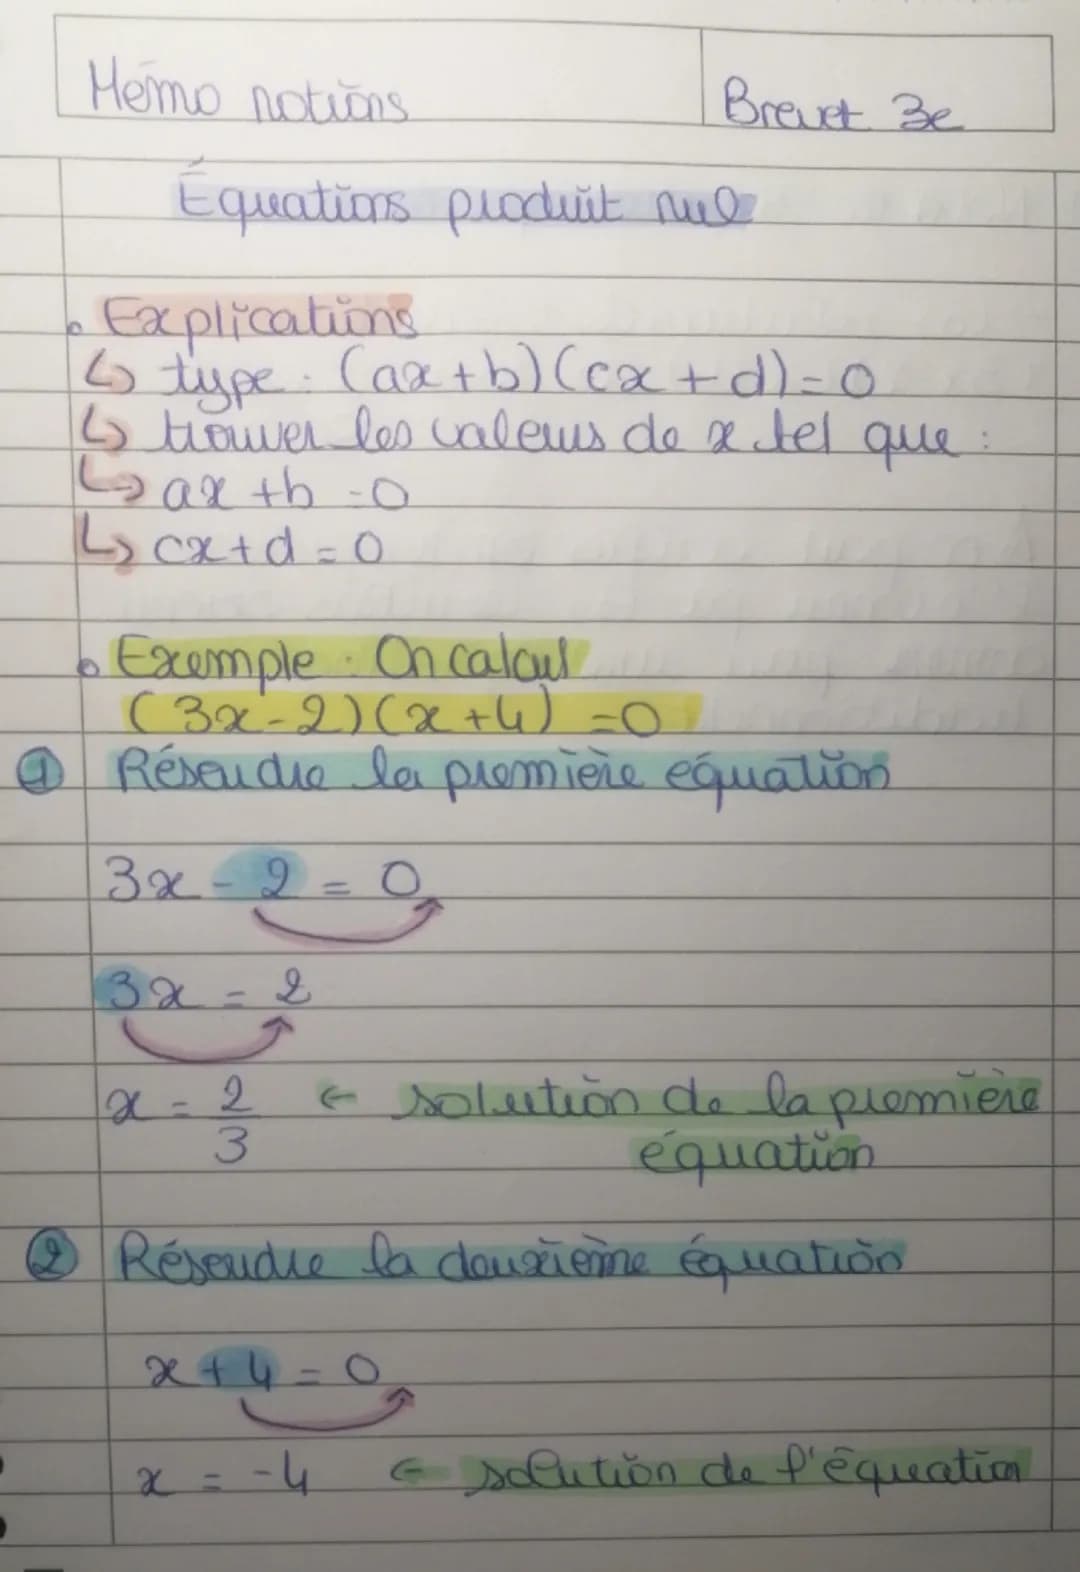 Mémo notions
Brevet 3e
Équations produit nul
• Explications
↳ type : (ax+b)(cx+d)=0
↳ trouver les valeurs de x tel que :
↳ ax+b=0
↳ cx+d=0
• Exemple : On calcul
(3x-2)(x+4)=0
① Résoudre la première équation
3x-2=0
3x=2
x = 2/3 ← solution de la première
équation
② Résoudre la deuxième équation
x+4=0
x = -4 ← solution de l'équation